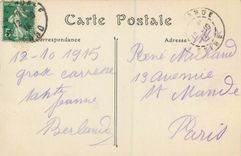 Carte Postale
Correspondance
Adresse
12-10 1915
gros caresse
tante
Jeanne
Berland
René Michaud
13 avenue
St Mandé
Paris